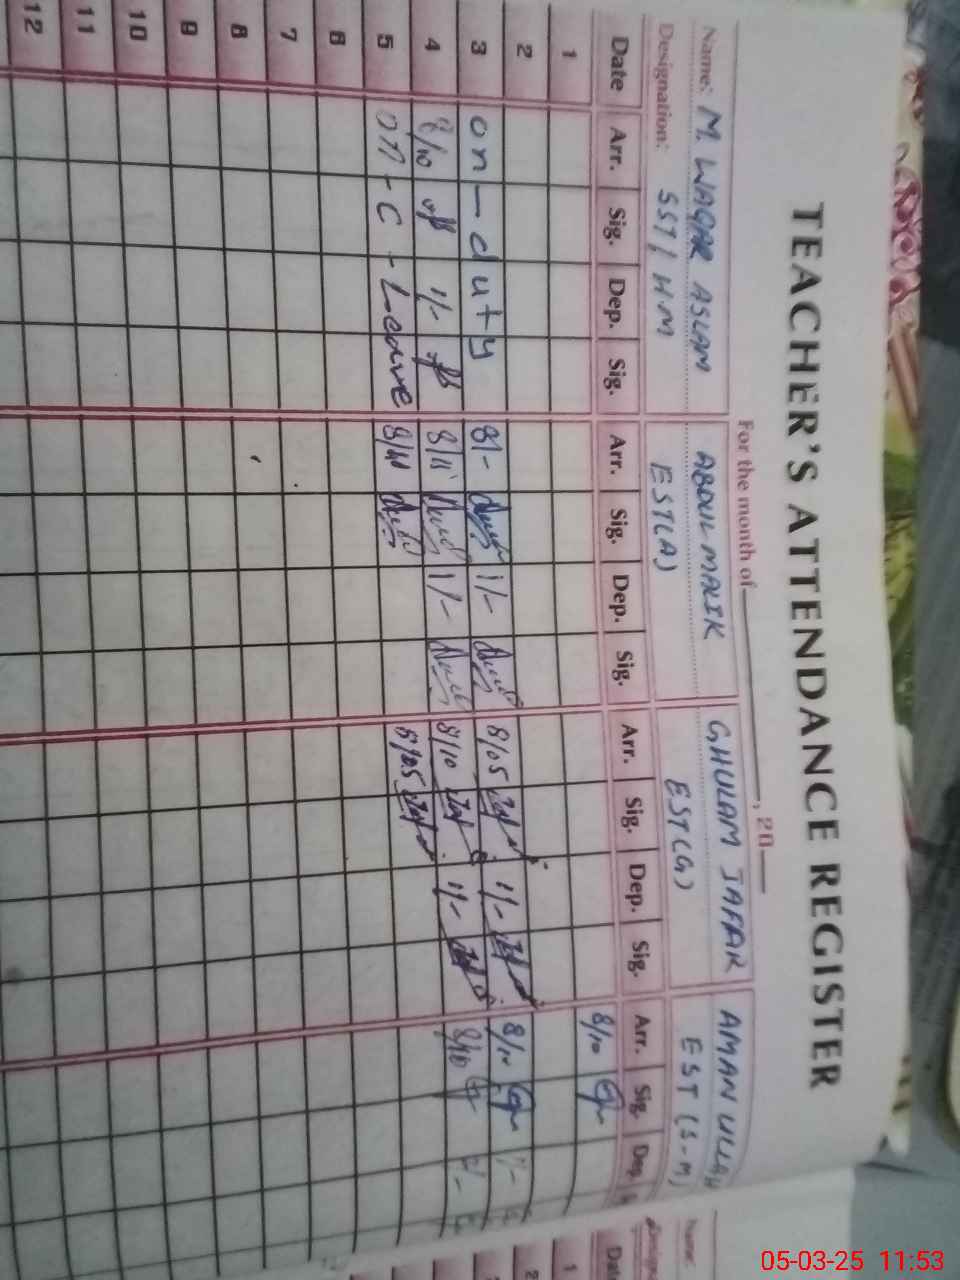 TEACHER'S ATTENDANCE REGISTER
For the month of , 20
Name: M. WAQAR ASLAM ABDUL MALIK GHULAM JAFFAR AMAN ULLAH
Designation: SST/H.M EST(A) EST(G) EST(S-M)
Date Arr. Sig. Dep. Sig. Arr. Sig. Dep. Sig. Arr. Sig. Dep. Sig. Arr. Sig. Dep.
1 8/10
2
3 on-duty 8/- 1/- 8/05 1/- 8/10 1/-
4 8/10 1/- 8/11 1/- 8/10 1/- 8/10
5 on - C - Leave 8/11 8/05
6
7
8
9
10
11
12
Name:
1
2
05-03-25 11:53